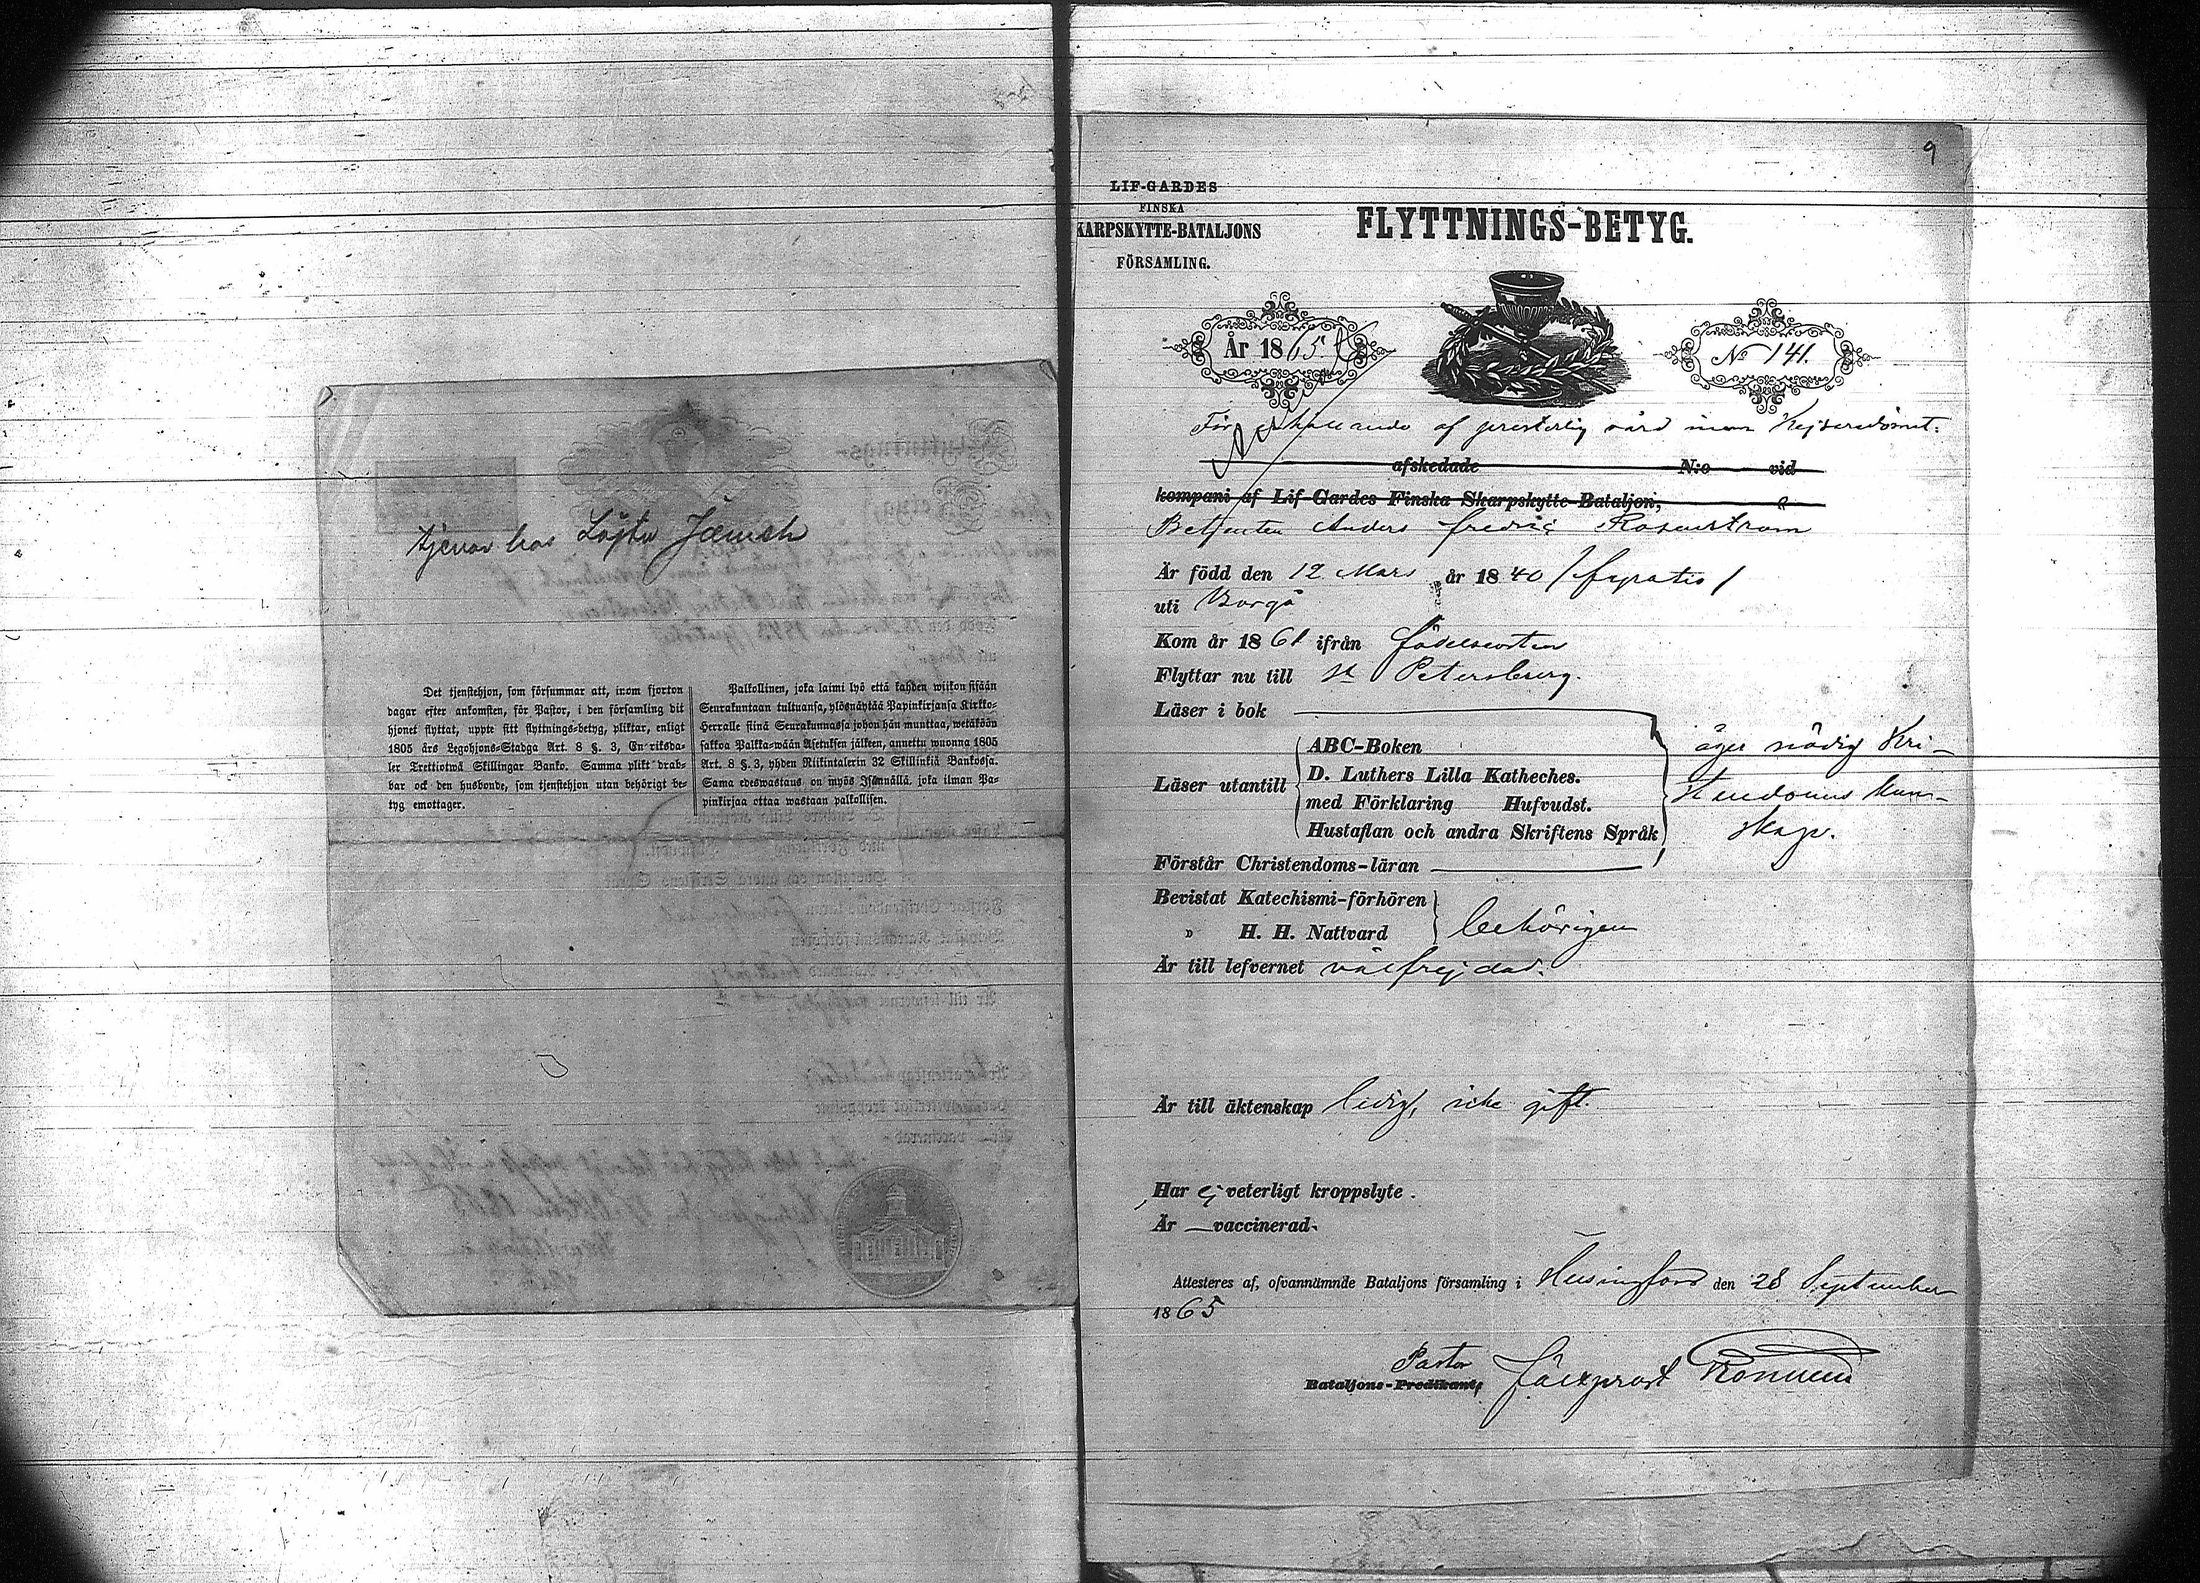 tjenar hos Löjtn Jænsch
Det tjenstehjon, som försummar att, inom fjorton
dagar efter ankomsten, för Pastor, i den församling dit
hjonet flyttat, uppte sitt flyttnings-betyg, pliktar, enligt
1805 års Legohjons-Stadga Art. 8 §. 3, En riksda-
ler Trettiotwå Skillingar Banko. Samma plikt drab-
bar ock den husbonde, som tjenstehjon utan behörigt be-
tyg emottager.
Palkollinen, joka laimi lyö että kahden wiikon sisään
Seurakuntaan tultuansa, ylösnäytää Papinkirjansa Kirkko-
Herralle siinä Seurakunnassa johon hän muuttaa, wetäköön
sakkoa Palkka-wään Asetuksen jälkeen, annettu wuonna 1805
Art. 8 §. 3, yhden Riikintalerin 32 Skillinkiä Bankossa.
Sama edeswastaus on myös Isännällä, joka ilman Pa-
pinkirjaa ottaa wastaan palkollisen.
9
LIF-GARDES
FINSKA
KARPSKYTTE-BATALJONS
FÖRSAMLING.
FLYTTNINGS-BETYG.
År 1865.
No 141.
För erhållande af presterlig vård inom Kejsaredömet.
afskedade N:o vid
kompani af Lif-Gardes Finska Skarpskytte-Bataljon,
Betjenten Anders Fredric Rosenström
Är född den 12 Mars år 1840 /fyratio/
uti Borgå
Kom år 1861 ifrån födelseorten
Flyttar nu till St Petersburg.
Läser i bok
Läser utantill
ABC-Boken
D. Luthers Lilla Katheches.
med Förklaring Hufvudst.
Hustaflan och andra Skriftens Språk
äger nödig Kri-
stendoms kun-
skap.
Förstår Christendoms-läran
Bevistat Katechismi-förhören
» H. H. Nattvard
behörigen
Är till lefvernet välfrejdad.
Är till äktenskap ledig, icke gift.
Har ej veterligt kroppslyte.
Är vaccinerad.
Attesteres af, ofvannämnde Bataljons församling i Helsingfors den 28 September
1865
Pastor
Bataljons-Predikant, Fältprost